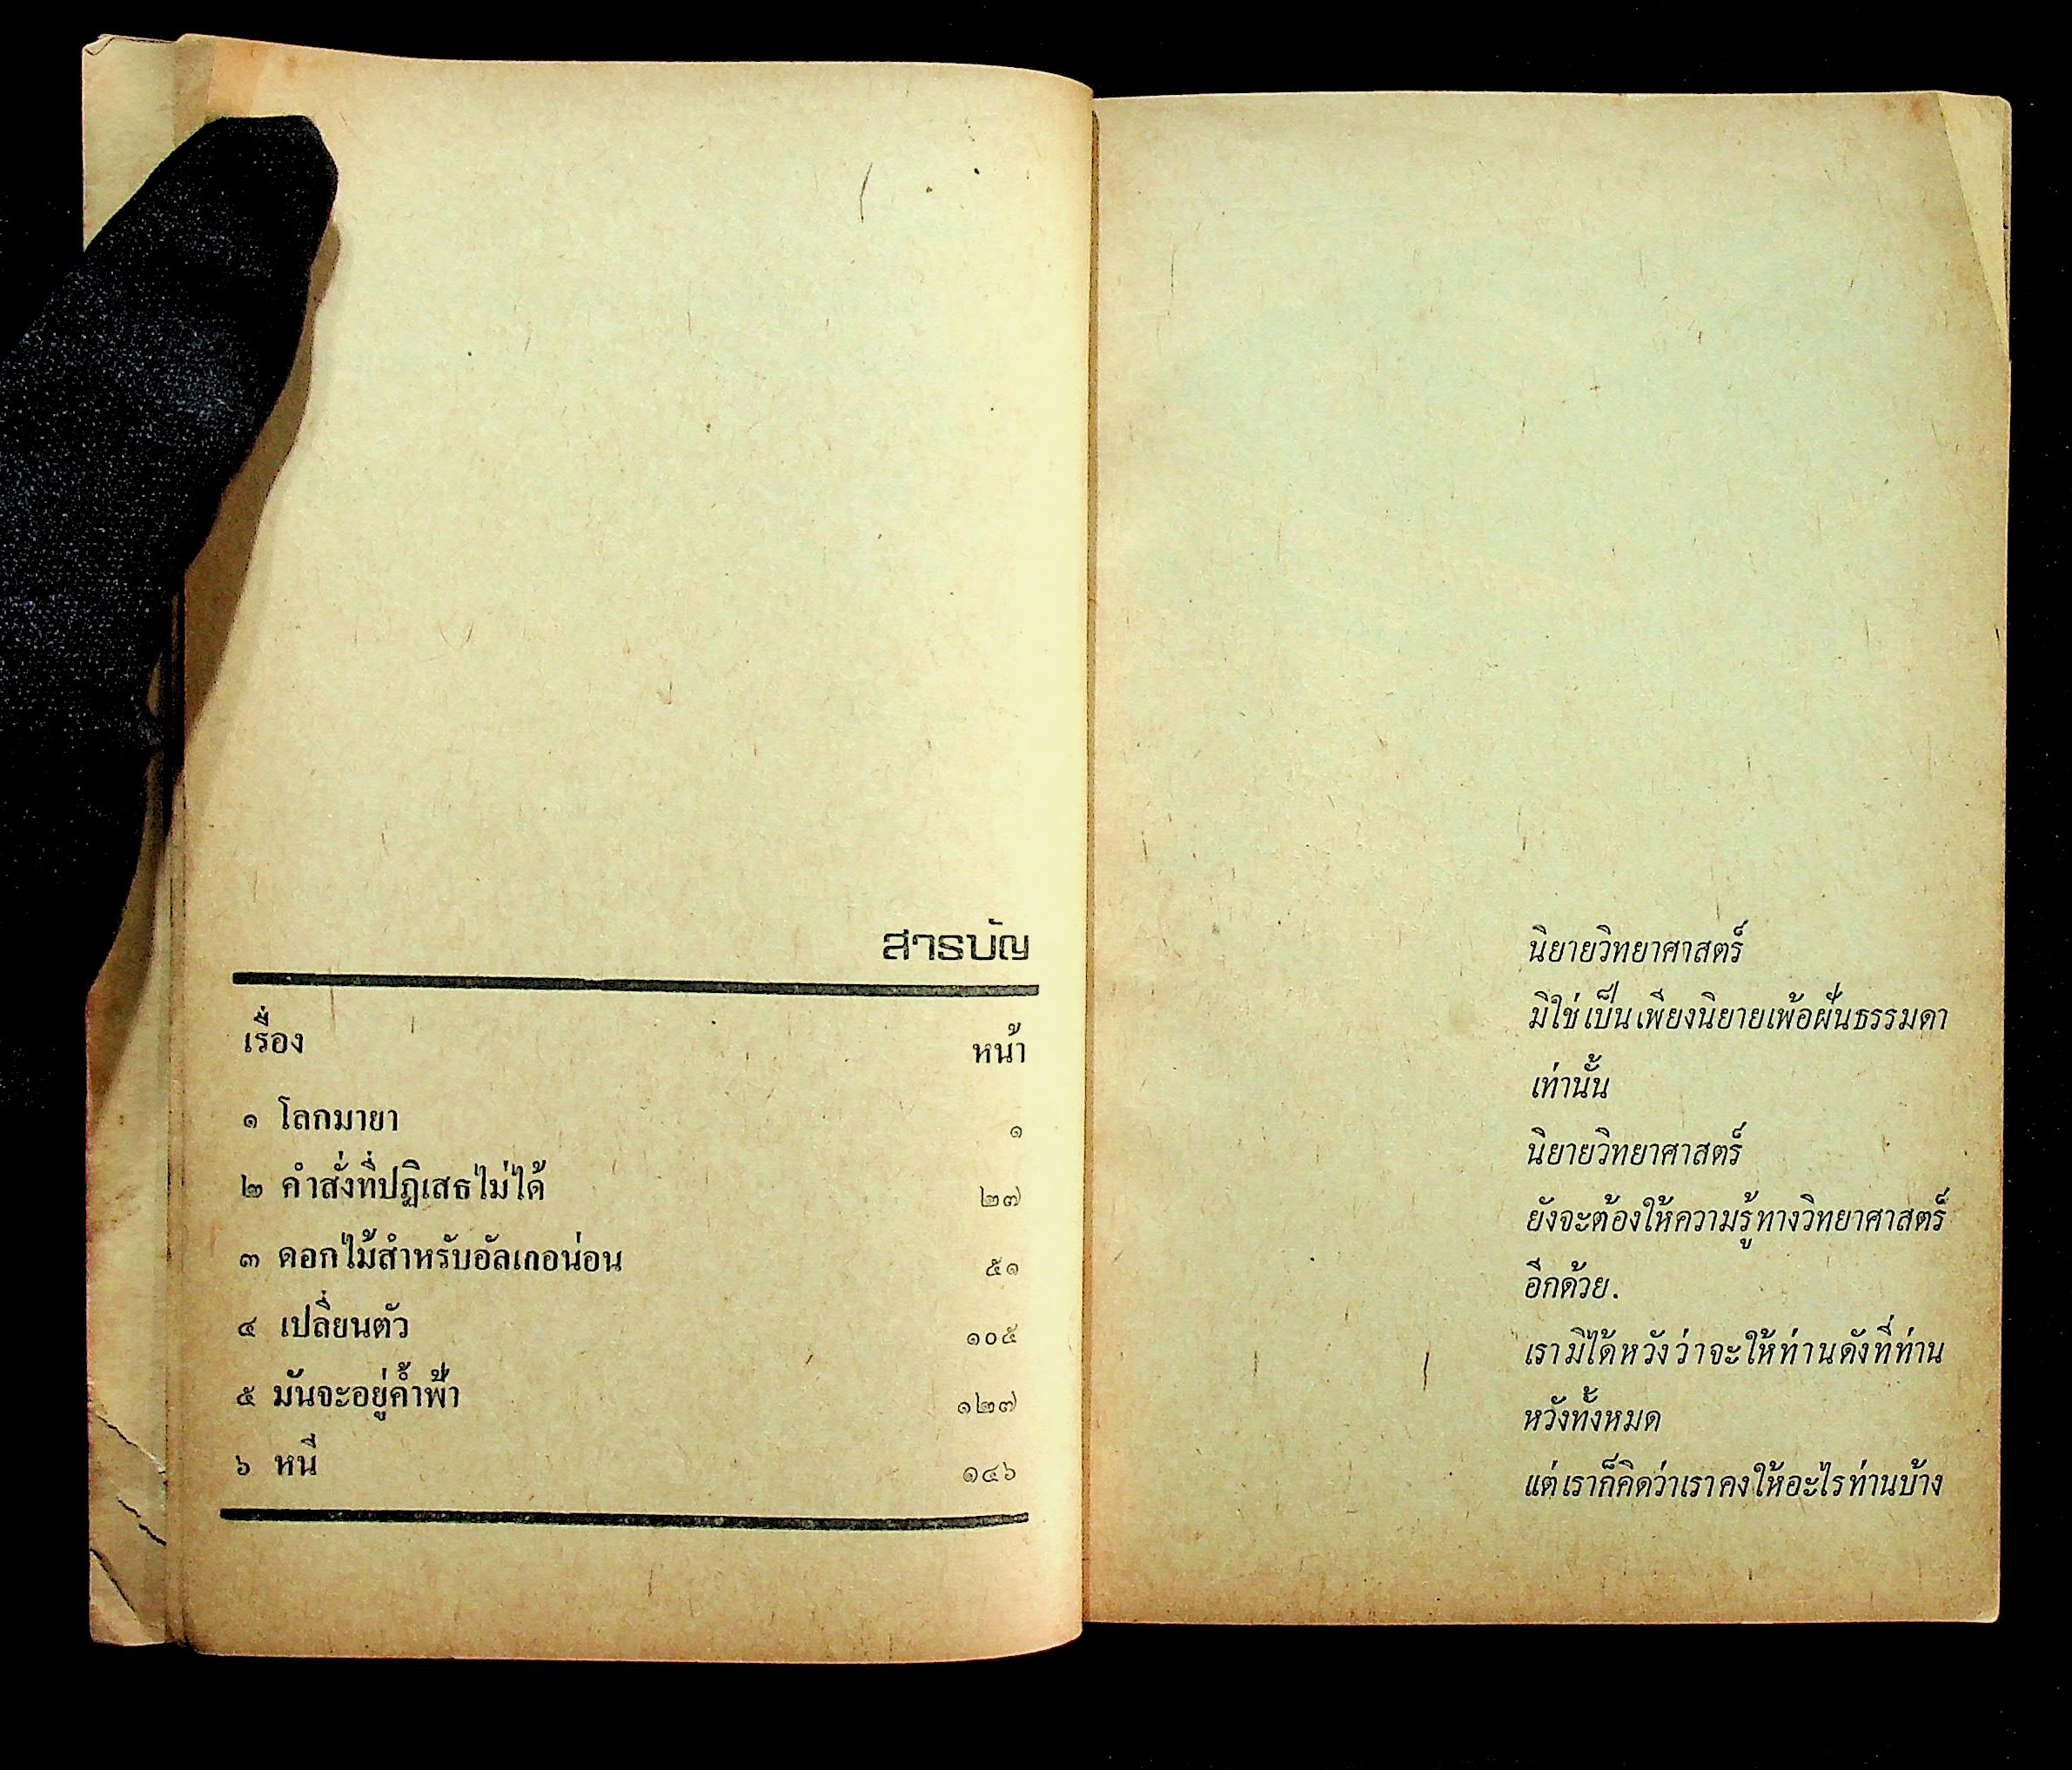 สารบัญ
เรื่อง หน้า
๑ โลกมายา ๑
๒ คำสั่งที่ปฏิเสธไม่ได้ ๒๗
๓ ดอกไม้สำหรับอัลเกอน่อน ๕๑
๔ เปลี่ยนตัว ๑๐๕
๕ มันจะอยู่ค้ำฟ้า ๑๒๗
๖ หนี ๑๔๖
นิยายวิทยาศาสตร์
มิใช่เป็นเพียงนิยายเพ้อฝันธรรมดา
เท่านั้น
นิยายวิทยาศาสตร์
ยังจะต้องให้ความรู้ทางวิทยาศาสตร์
อีกด้วย.
เรามิได้หวังว่าจะให้ท่านดังที่ท่าน
หวังทั้งหมด
แต่เราก็คิดว่าเราคงให้อะไรท่านบ้าง